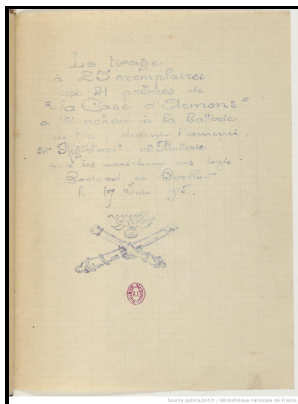 Le tirage
à 25 exemplaires
des 21 poèmes de
"la Case d'Armons"
a été achevé à la batterie
devant l'ennemi.
38e Régiment Batterie
par les maréchaux des logis
Bodard
le 17 Juin 1915.
Source gallica.bnf.fr / Bibliothèque nationale de France